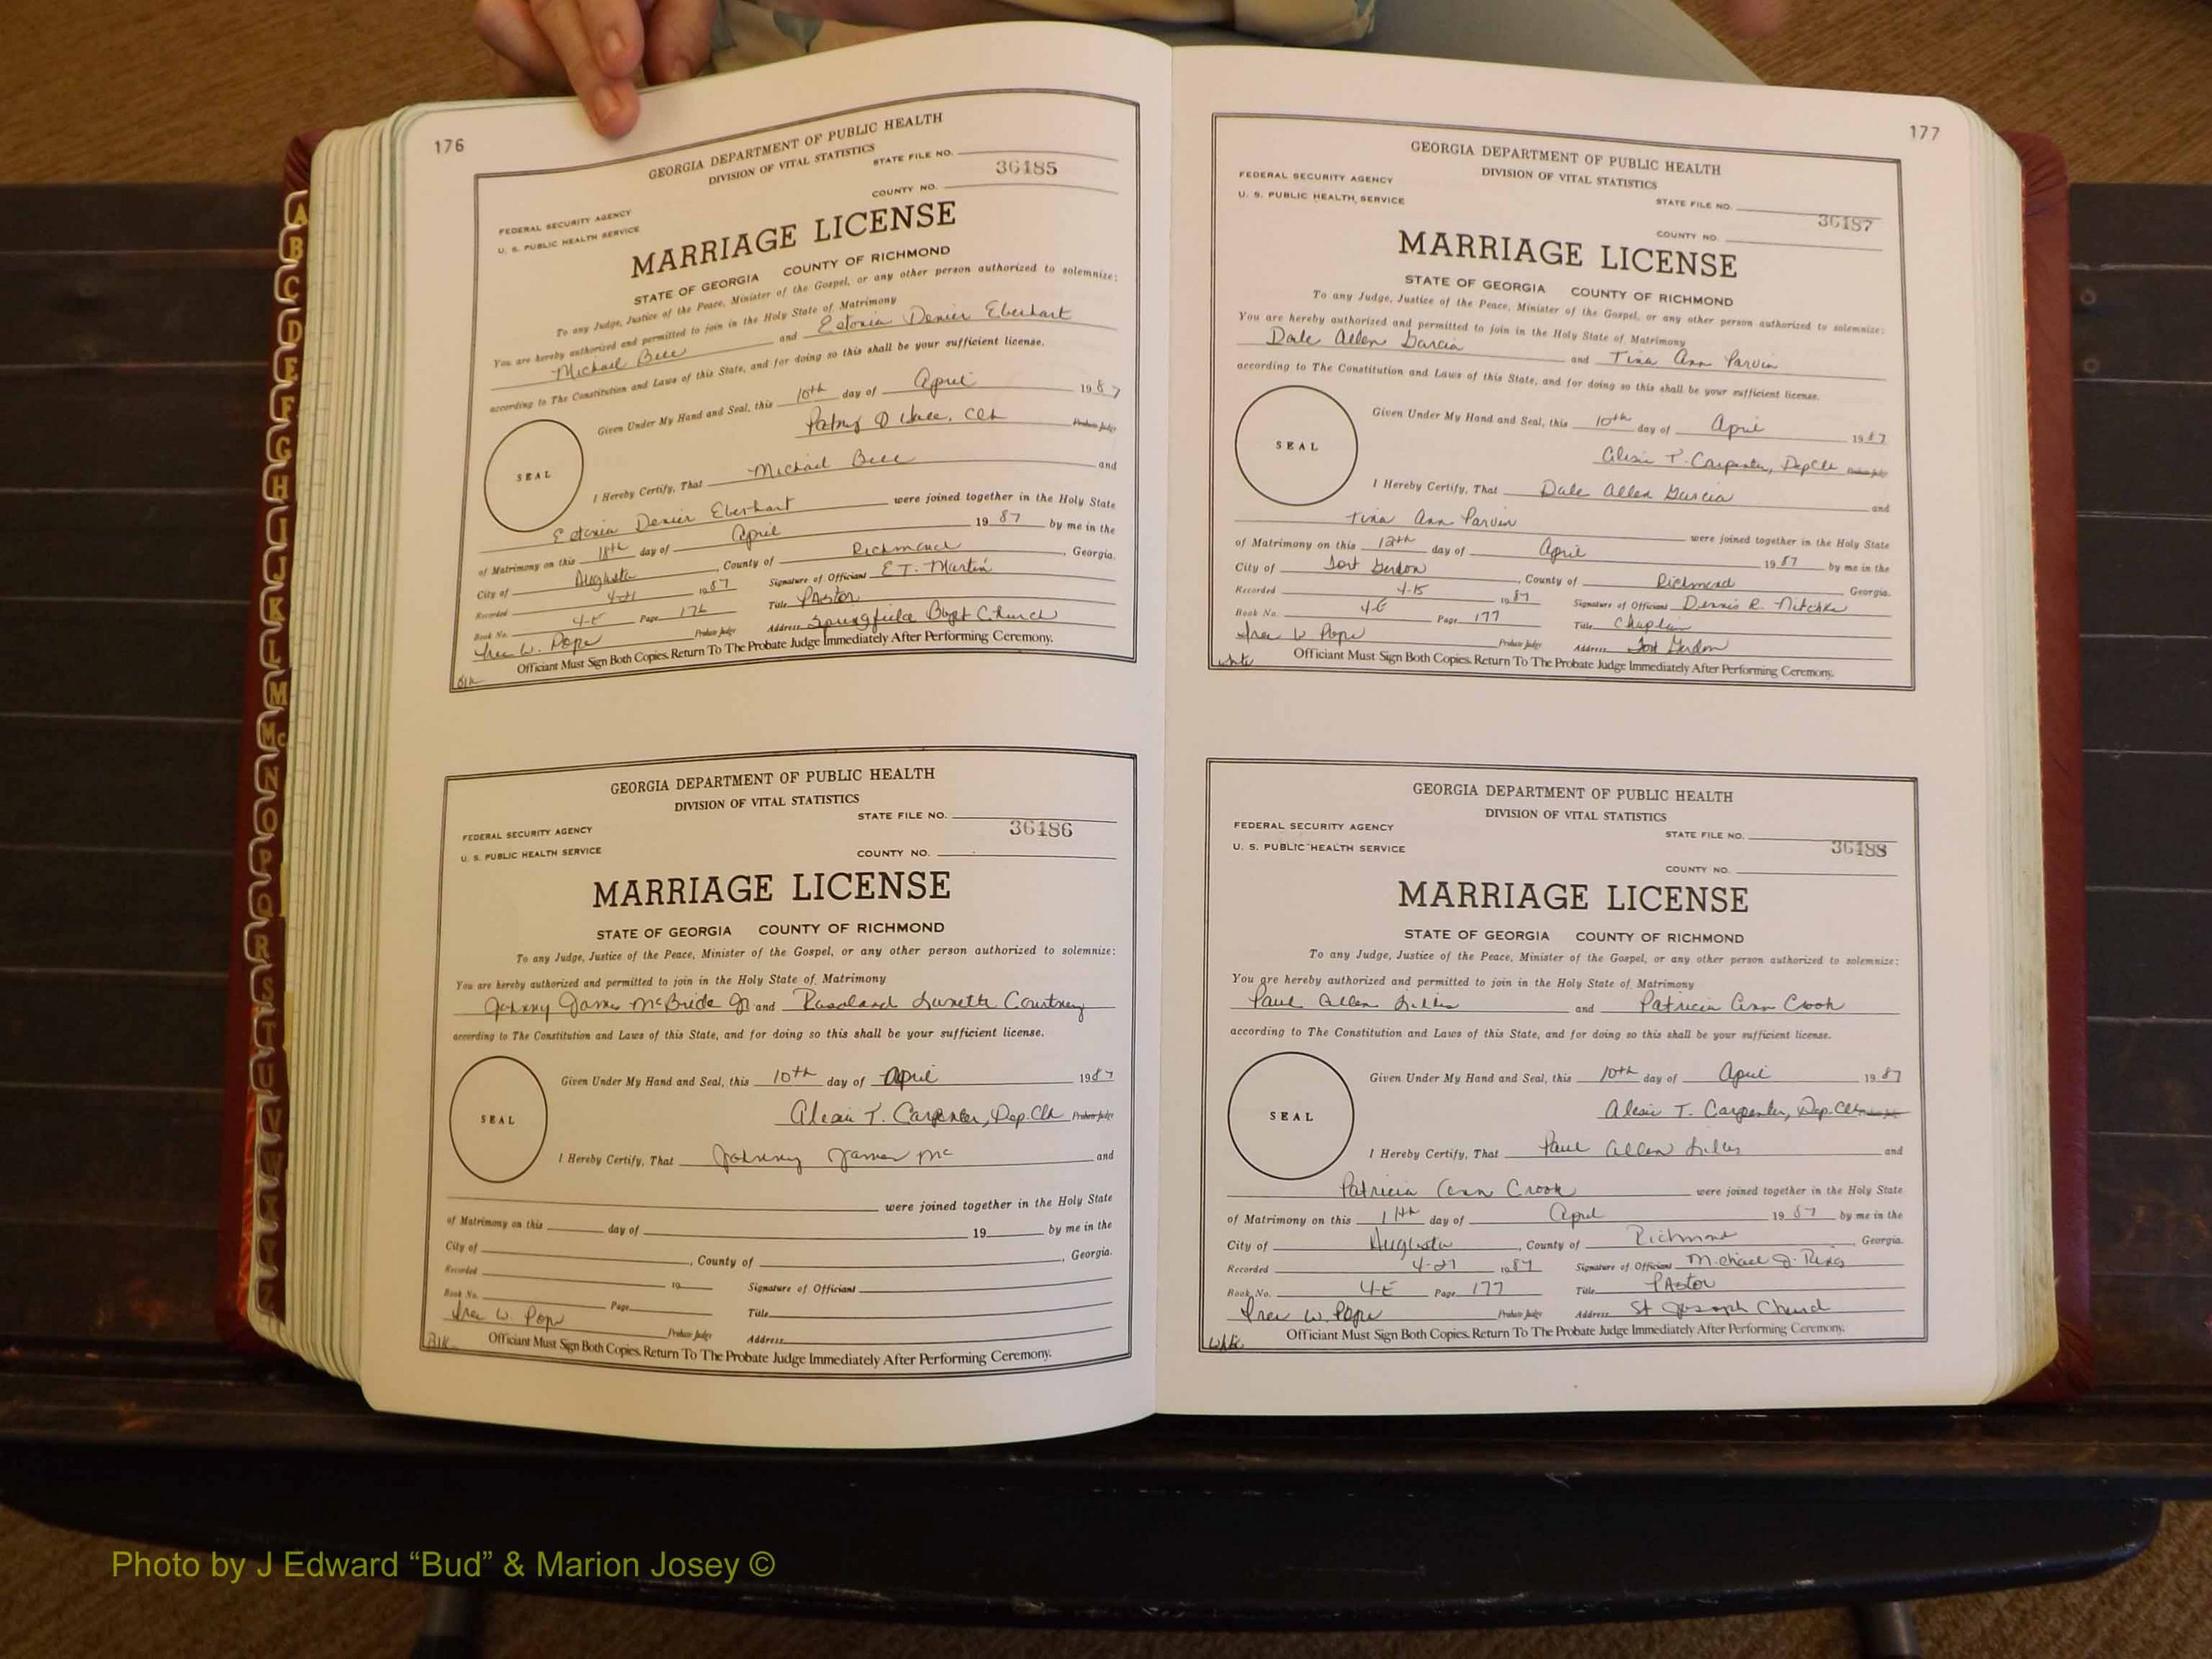 176
GEORGIA DEPARTMENT OF PUBLIC HEALTH
DIVISION OF VITAL STATISTICS
STATE FILE NO.
36485
COUNTY NO.
FEDERAL SECURITY AGENCY
U. S. PUBLIC HEALTH SERVICE
MARRIAGE LICENSE
STATE OF GEORGIA COUNTY OF RICHMOND
To any Judge, Justice of the Peace, Minister of the Gospel, or any other person authorized to solemnize:
You are hereby authorized and permitted to join in the Holy State of Matrimony
Michael Bell and Estonia Denier Eberhart
according to The Constitution and Laws of this State, and for doing so this shall be your sufficient license.
Given Under My Hand and Seal, this 10th day of April 1987
Clk Probate Judge
SEAL
I Hereby Certify, That Michael Bell and
Estonia Denier Eberhart were joined together in the Holy State
of Matrimony on this 18th day of April 1987 by me in the
City of Augusta, County of Richmond, Georgia.
Recorded 4-21 1987 Signature of Officiant E T. Martin
Book No. 4-E Page 176 Title Pastor
W. Pope Probate Judge Address Springfield Bapt Church
Officiant Must Sign Both Copies. Return To The Probate Judge Immediately After Performing Ceremony.
Blk
GEORGIA DEPARTMENT OF PUBLIC HEALTH
DIVISION OF VITAL STATISTICS
STATE FILE NO.
36486
FEDERAL SECURITY AGENCY
U. S. PUBLIC HEALTH SERVICE
COUNTY NO.
MARRIAGE LICENSE
STATE OF GEORGIA COUNTY OF RICHMOND
To any Judge, Justice of the Peace, Minister of the Gospel, or any other person authorized to solemnize:
You are hereby authorized and permitted to join in the Holy State of Matrimony
Johnny James McBride Jr and Courtney
according to The Constitution and Laws of this State, and for doing so this shall be your sufficient license.
Given Under My Hand and Seal, this 10th day of April 1987
T. Carpenter, Dep. Clk Probate Judge
SEAL
I Hereby Certify, That Johnny James Mc and
were joined together in the Holy State
of Matrimony on this day of 19 by me in the
City of , County of , Georgia.
Recorded 19 Signature of Officiant
Book No. Page Title
W. Pope Probate Judge Address
Officiant Must Sign Both Copies. Return To The Probate Judge Immediately After Performing Ceremony.
Blk
177
GEORGIA DEPARTMENT OF PUBLIC HEALTH
DIVISION OF VITAL STATISTICS
FEDERAL SECURITY AGENCY
U. S. PUBLIC HEALTH SERVICE
STATE FILE NO.
36487
COUNTY NO.
MARRIAGE LICENSE
STATE OF GEORGIA COUNTY OF RICHMOND
To any Judge, Justice of the Peace, Minister of the Gospel, or any other person authorized to solemnize:
You are hereby authorized and permitted to join in the Holy State of Matrimony
Dale Allen Garcia and Tina Ann Parvin
according to The Constitution and Laws of this State, and for doing so this shall be your sufficient license.
Given Under My Hand and Seal, this 10th day of April 1987
T. Carpenter, Dep Clk Probate Judge
SEAL
I Hereby Certify, That Dale Allen Garcia and
Tina Ann Parvin were joined together in the Holy State
of Matrimony on this 12th day of April 1987 by me in the
City of Fort Gordon, County of Richmond Georgia.
Recorded 4-15 1987 Signature of Officiant Dennis R. Nitchke
Book No. 4-E Page 177 Title Chaplain
W Pope Probate Judge Address Fort Gordon
Officiant Must Sign Both Copies. Return To The Probate Judge Immediately After Performing Ceremony.
White
GEORGIA DEPARTMENT OF PUBLIC HEALTH
DIVISION OF VITAL STATISTICS
FEDERAL SECURITY AGENCY
U. S. PUBLIC HEALTH SERVICE
STATE FILE NO.
36488
COUNTY NO.
MARRIAGE LICENSE
STATE OF GEORGIA COUNTY OF RICHMOND
To any Judge, Justice of the Peace, Minister of the Gospel, or any other person authorized to solemnize:
You are hereby authorized and permitted to join in the Holy State of Matrimony
Paul Allen and Patricia Ann Crook
according to The Constitution and Laws of this State, and for doing so this shall be your sufficient license.
Given Under My Hand and Seal, this 10th day of April 1987
T. Carpenter, Dep. Clk
SEAL
I Hereby Certify, That Paul Allen and
Patricia Ann Crook were joined together in the Holy State
of Matrimony on this 11th day of April 1987 by me in the
City of Augusta, County of Richmond, Georgia.
Recorded 4-27 1987 Signature of Officiant Michael J.
Book No. 4-E Page 177 Title Pastor
W. Pope Probate Judge Address St Joseph Church
Officiant Must Sign Both Copies. Return To The Probate Judge Immediately After Performing Ceremony.
White
A
B
C
D
E
F
G
H
I
J
K
L
M
Mc
N
O
P
Q
R
S
T
U
V
Photo by J Edward “Bud” & Marion Josey ©